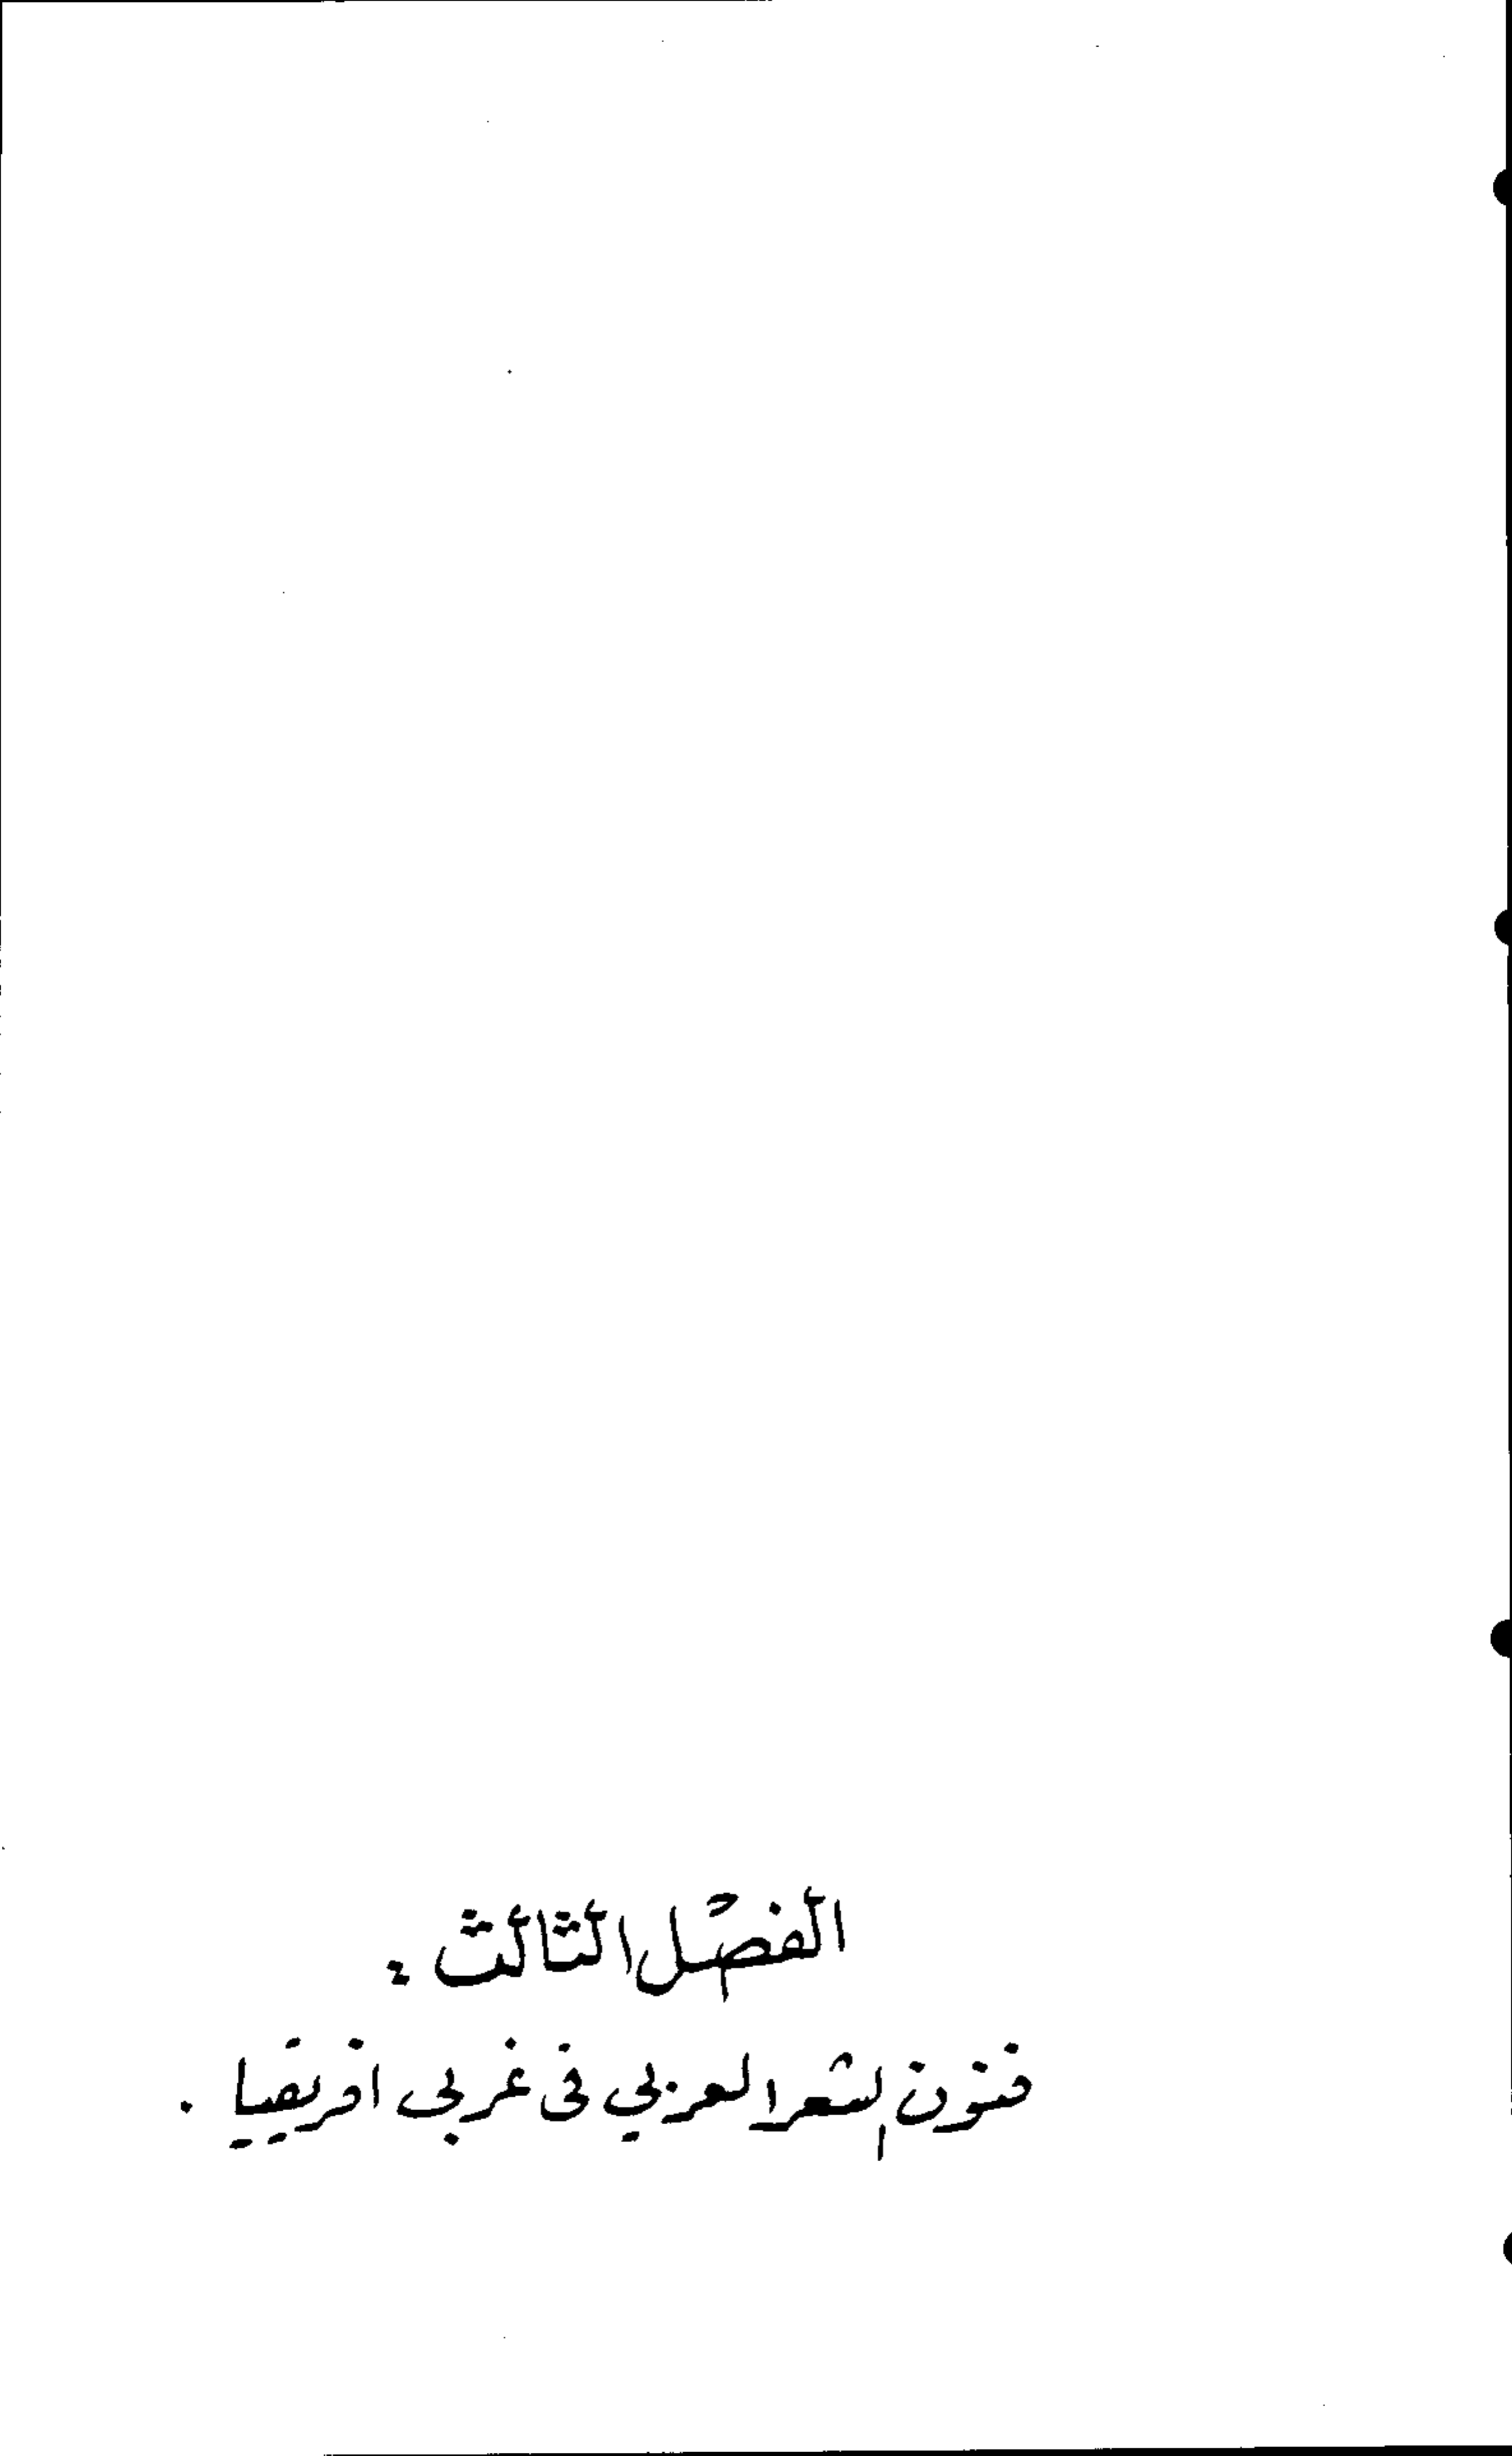 الفصل الثالث :
فنون الشعر العربي في غربي افريقيا .